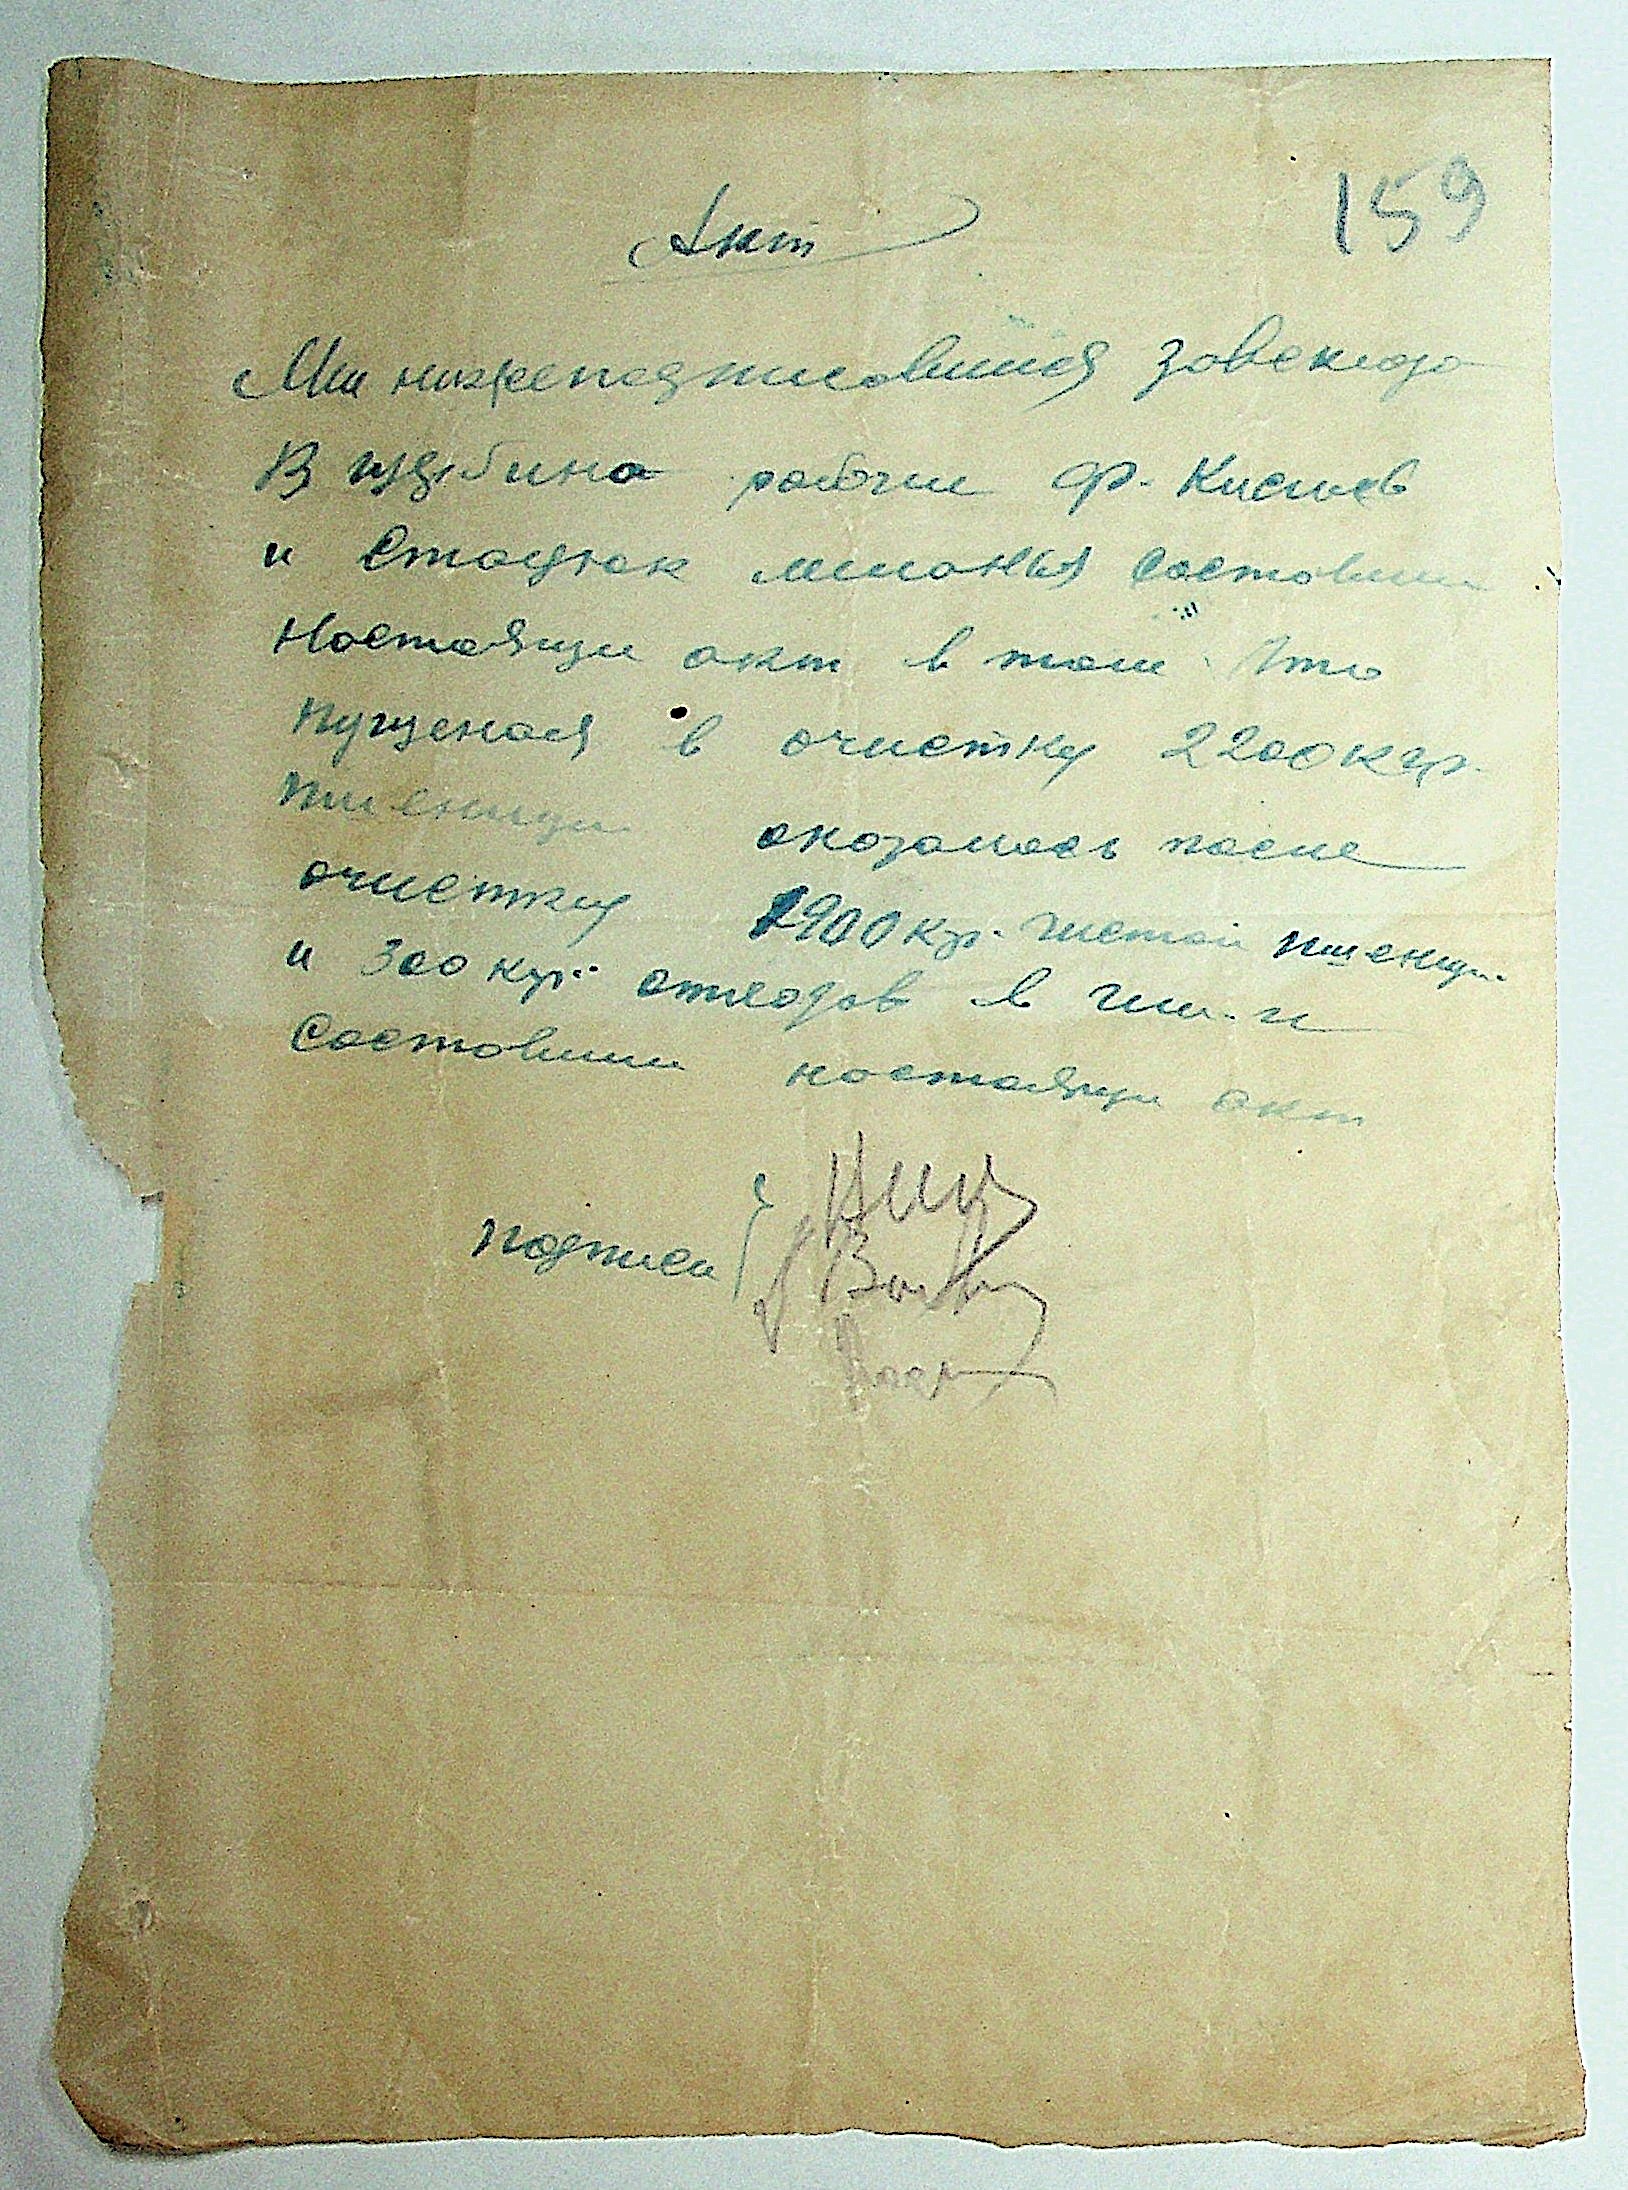 159
Акт
Мы нижеподписавшиися завсклада
В Щербина рабочие Ф. Кислев
и Стацюк Миланья составили
Настоящи акт в том что
пущеная в очистку 2200 кгр.
пшеницы оказалось после
очистки 1900 кгр. чистой пшеници
и 300 кгр. отходов в чем и
составили настоящи акт
подписи